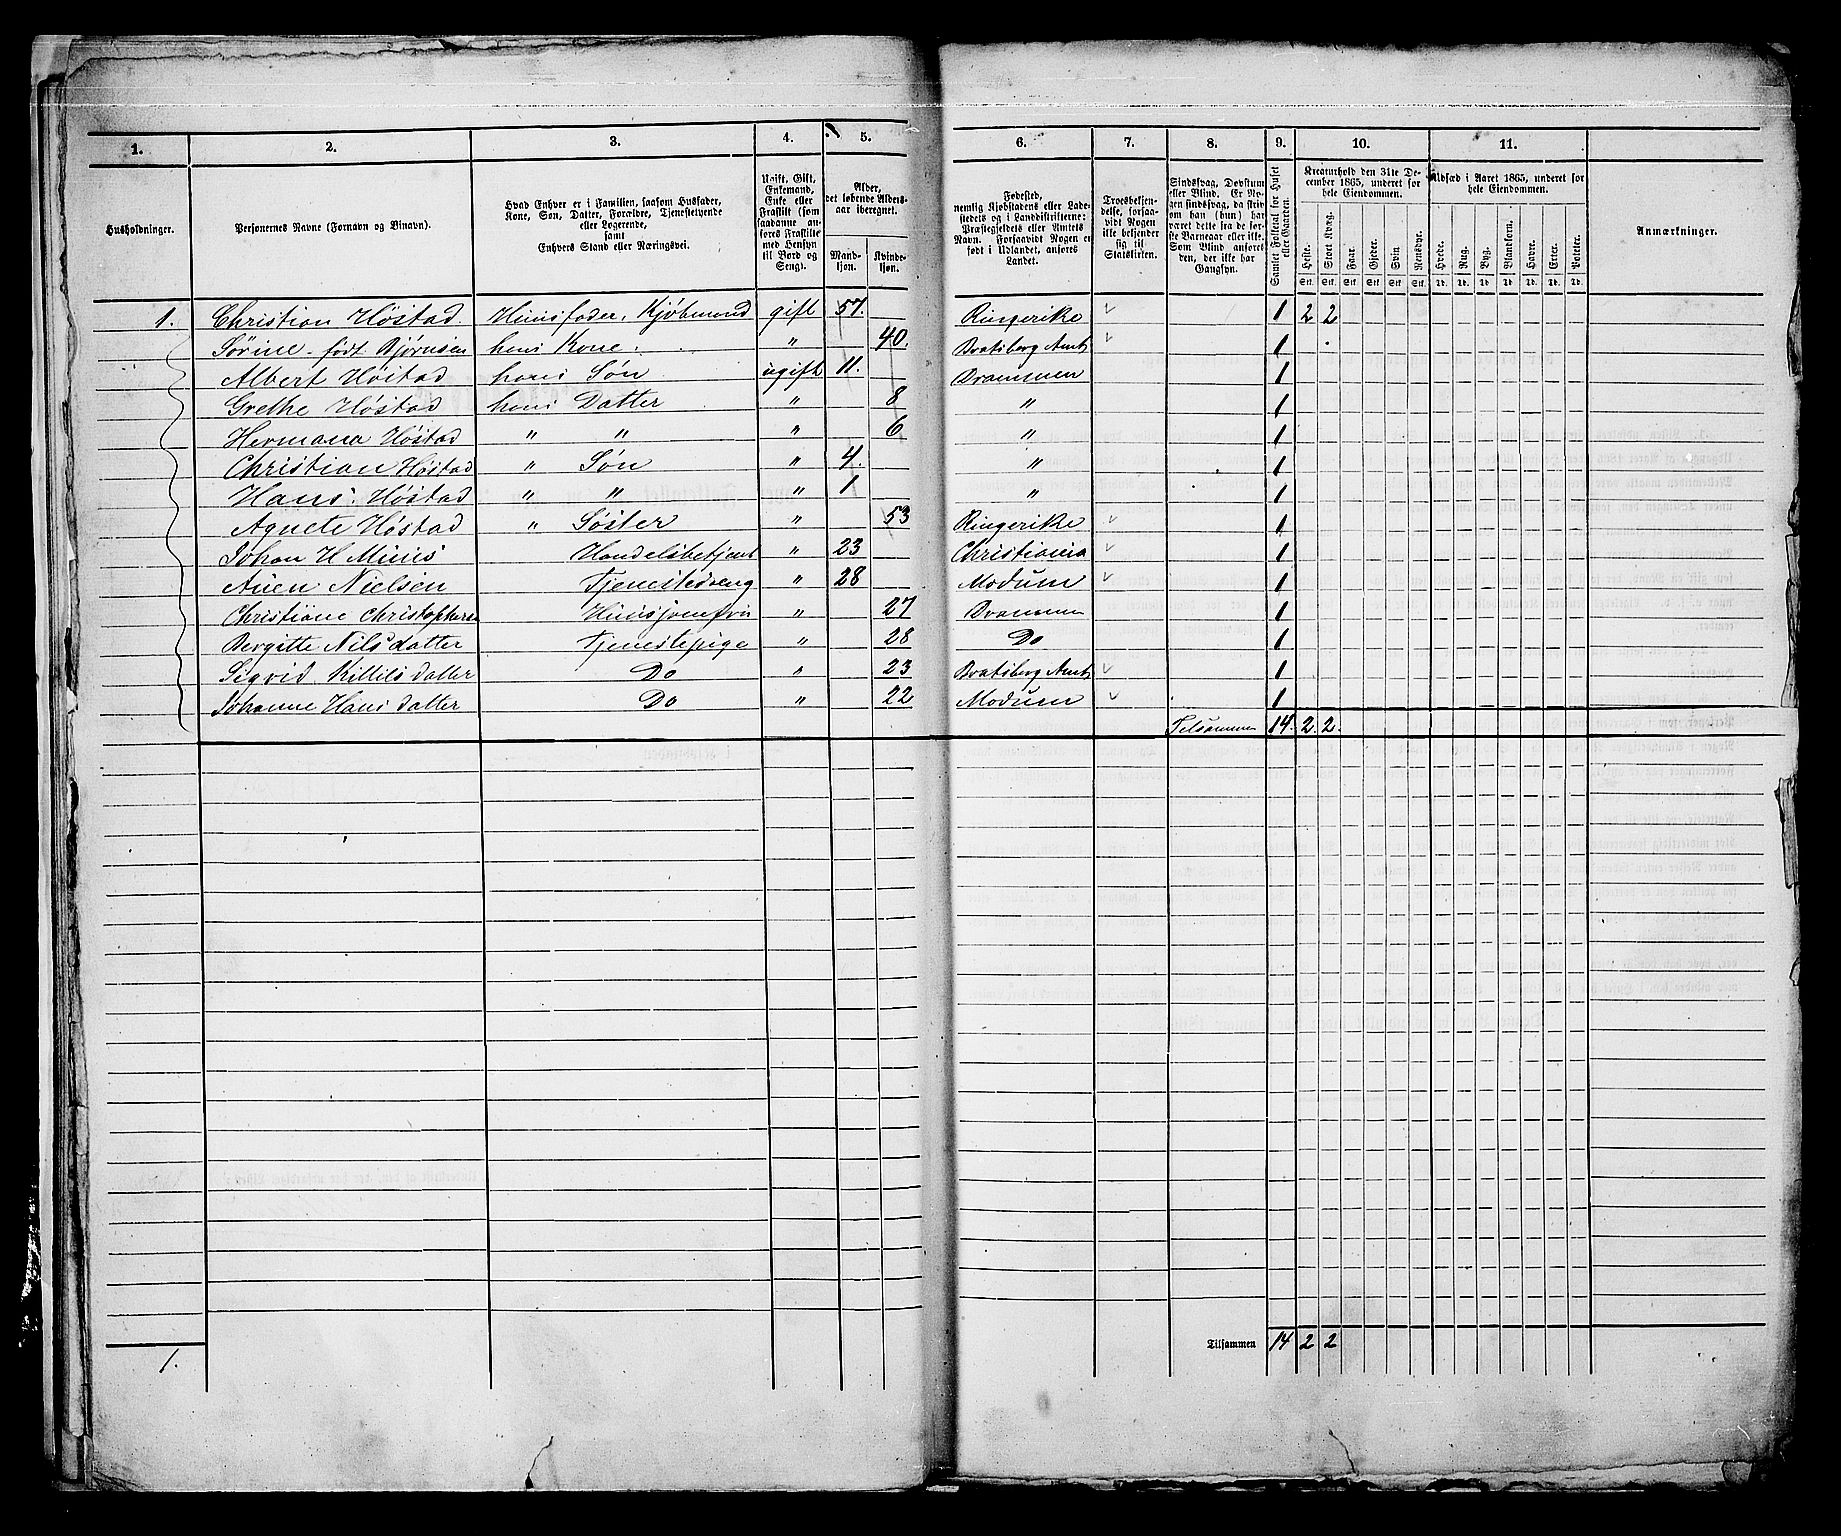 1. 2. 3. 4. 5. 6. 7. 8. 9. 10. 11.
Husholdninger.
Personernes Navne (Fornavn og Binavn).
Hvad Enhver er i Familien, saasom Husfader,
Kone, Søn, Datter, Forældre, Tjenestetyende
eller Logerende,
samt
Enhvers Stand eller Næringsvei.
Ugift, Gift,
Enkemand,
Enke eller
Fraskilt (som
saadanne an-
føres Fraskilte
med Hensyn
til Bord og
Seng).
Alder,
det løbende Alders-
aar iberegnet.
Mand-
kjøn.
Kvinde-
kjøn.
Fødested,
nemlig Kjøbstadens eller Lade-
stedets og i Landdistrikterne:
Præstegjeldets eller Amtets
Navn. Forsaavidt Nogen er
født i Udlandet, anføres
Landet.
Troesbekjen-
delse, forsaa-
vidt Nogen
ikke bekjender
sig til
Statskirken.
Sindssvag, Døvstum
eller Blind. Er No-
gen sindssvag, da skriv
om han (hun) har
været dette fra de før-
ste Barneaar eller ikke.
Som Blind anføres
den, der ikke har
Gangsyn.
Samlet Folketal for Huset
eller Gaarden.
Kreaturhold den 31te De-
cember 1865, underet for
hele Eiendommen.
Heste. Stort Kvæg. Faar. Gjeder. Svin. Rensdyr.
Stk. Stk. Stk. Stk. Stk. Stk.
Udsæd i Aaret 1865, underet for
hele Eiendommen.
Hvede. Rug. Byg. Blandkorn. Havre. Erter. Poteter.
Td. Td. Td. Td. Td. Td. Td.
Anmærkninger.
1. Christian Høstad. Huusfader, Kjøbmand gift 57. Ringerike 1 2 2
Sørine født Bjørnsen hans Kone. " 40. Bratsberg Amt 1
Albert Høstad hans Søn ugift 11. Drammen 1
Grethe Høstad hans Datter " 8 " 1
Hermana Høstad " " " 6 " 1
Christian Høstad " Søn " 4. " 1
Hans Høstad " " " 1 " 1
Agnete Høstad " Søster " 53 Ringerike 1
Johan H. Handelsbetjent " 23 Christiania 1
Nielsen Tjenestedreng " 28 Modum 1
Christiane Christophersen Huusjomfru " 27 Drammen 1
Bergitte Nilsdatter Tjenestepige " 28 Do 1
Sigrid Killilsdatter Do " 23 Bratsberg Amt 1
Johanne Hansdatter Do " 22 Modum 1
Tilsammen 14. 2. 2.
1. Tilsammen 14 2 2